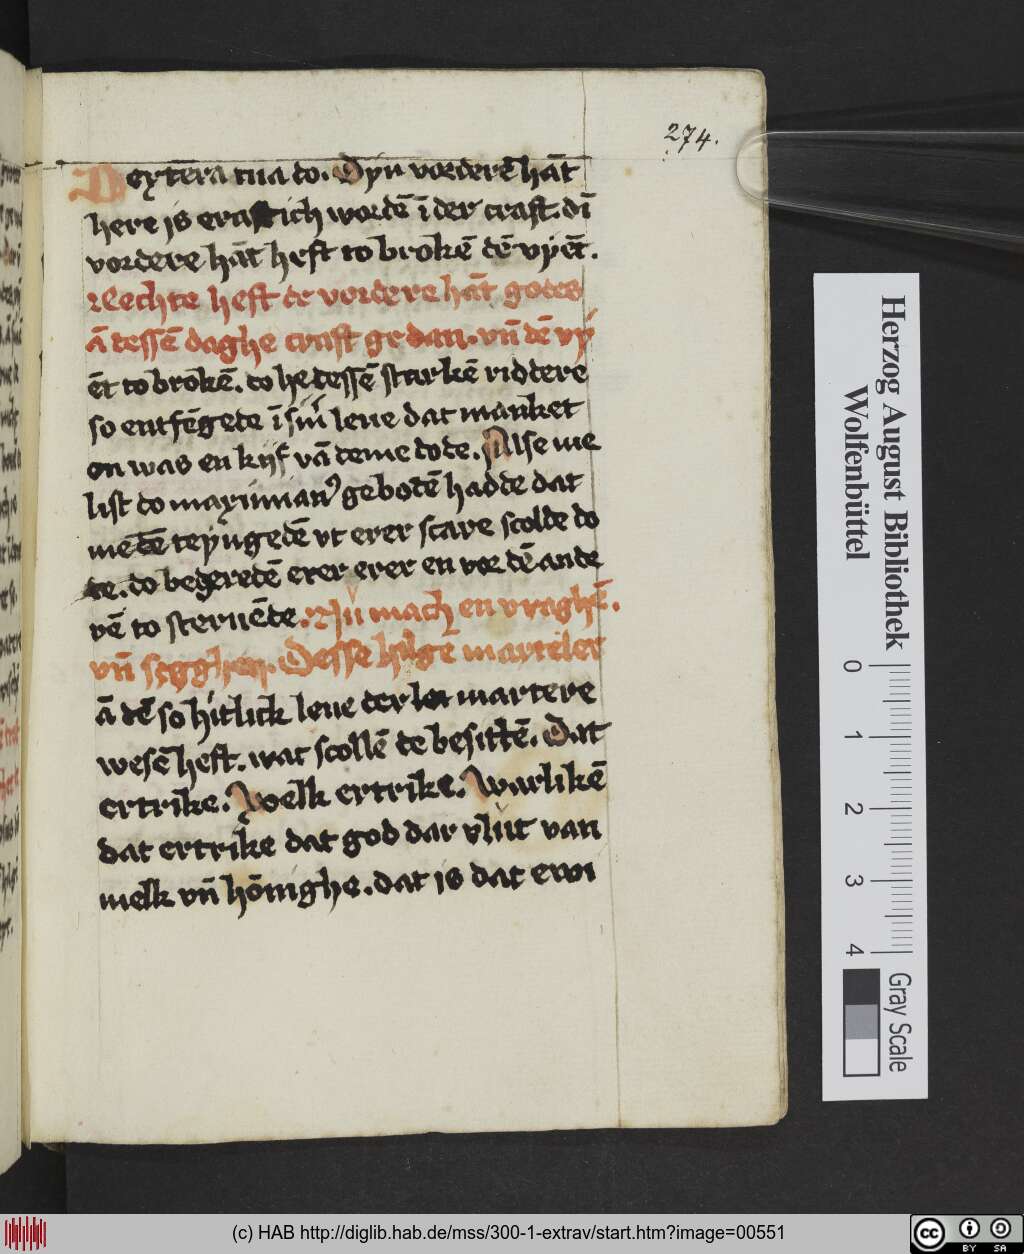 274.
Dextēra tua do. Dyn vorderē hāt
here is eraftich wordē ī der craft. dī
vordere hāt heft to brokē dē vyēt.
Rechte heft de vordere hāt godes
ā dessē daghe craft ge dan. vn̄ dē vy
ēt to brokē. do he dessē starkē riddere
so entfēgede ī sīn leue dat manket
en was en kyf vā deme dode. Alse me
list do maximian⁹ gebodē hadde dat
mē dē teyngedē vt erer scare scolde do
de. do begeredē erer erer en vor dē ande
rē to steruēde. Nu mach en vraghē.
vn̄ segghen. Desse hilge marteler
ā dē so hitlick leue der martere
wesē heft. wat scollē de besittē. Dat
ertrike. Woelk ertrike. Warlikē
dat ertrike dat god dar vlut van
melk vn̄ hōnighe. dat is dat ewi
Herzog August Bibliothek
Wolfenbüttel
0 1 2 3 4
Gray Scale
(c) HAB http://diglib.hab.de/mss/300-1-extrav/start.htm?image=00551
cc BY SA